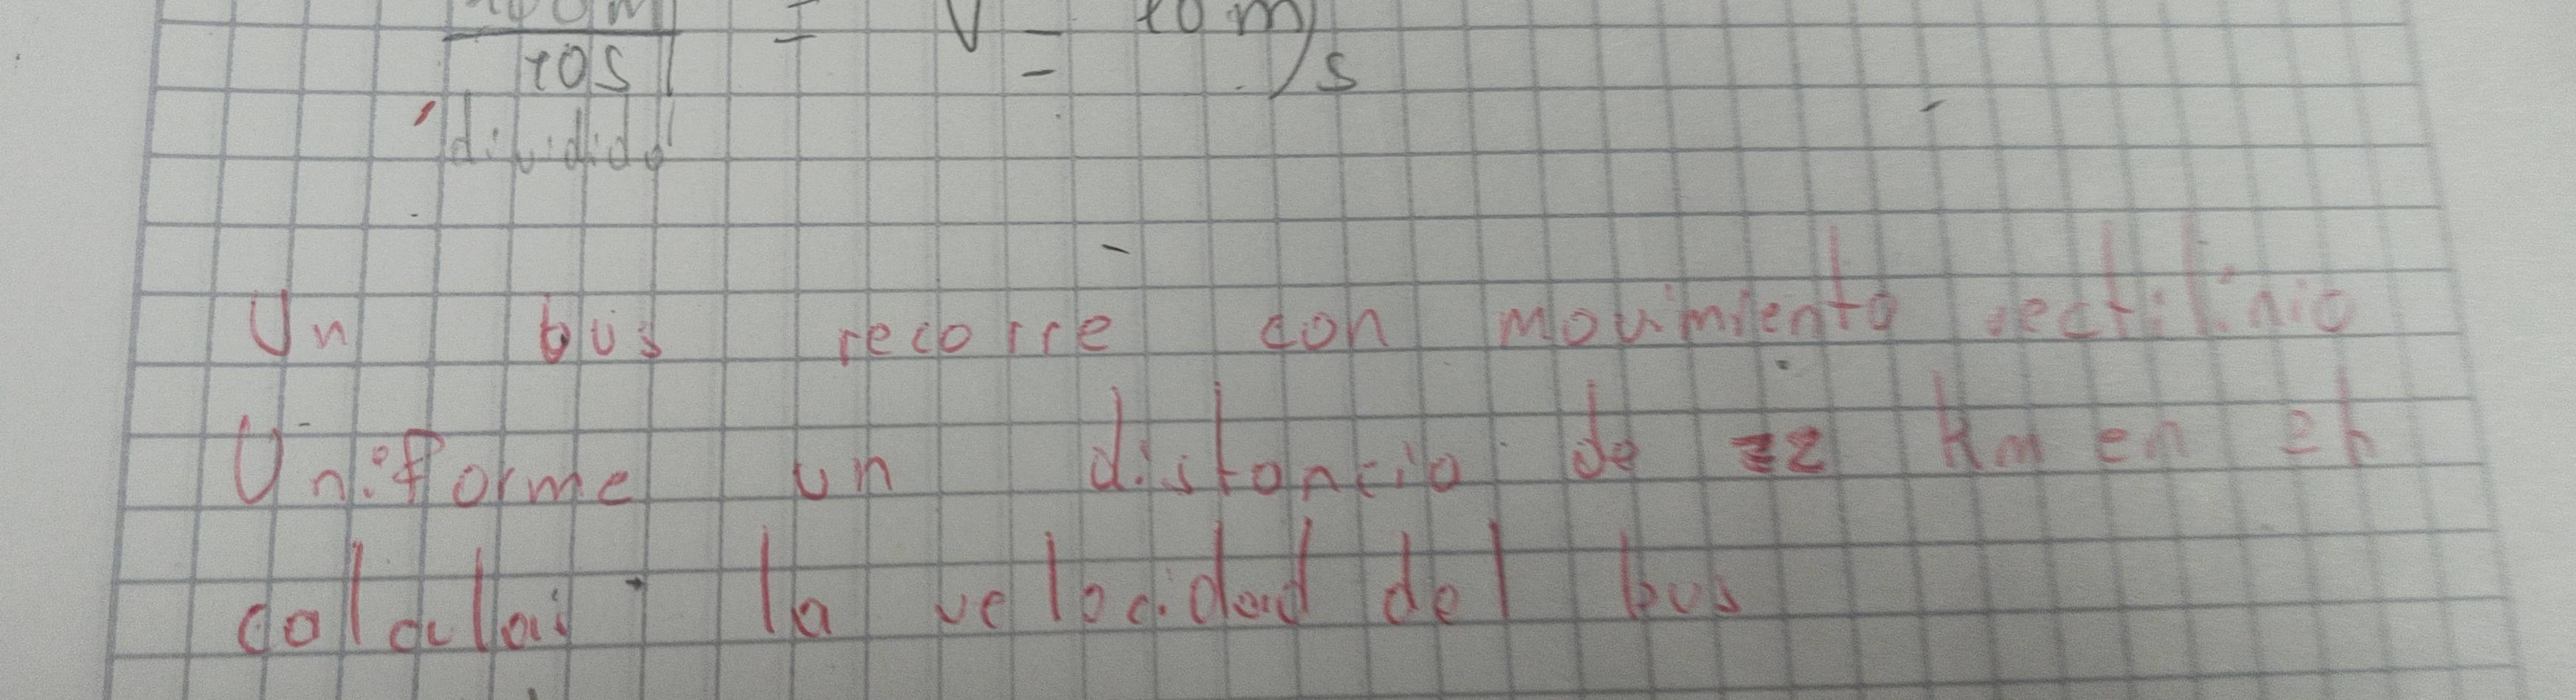 100m = V = 10 m/s
10s
dividido
Un bus recorre con movimiento rectilinio
Uniforme un distancia de 72 km en 2h
calcular la velocidad del bus